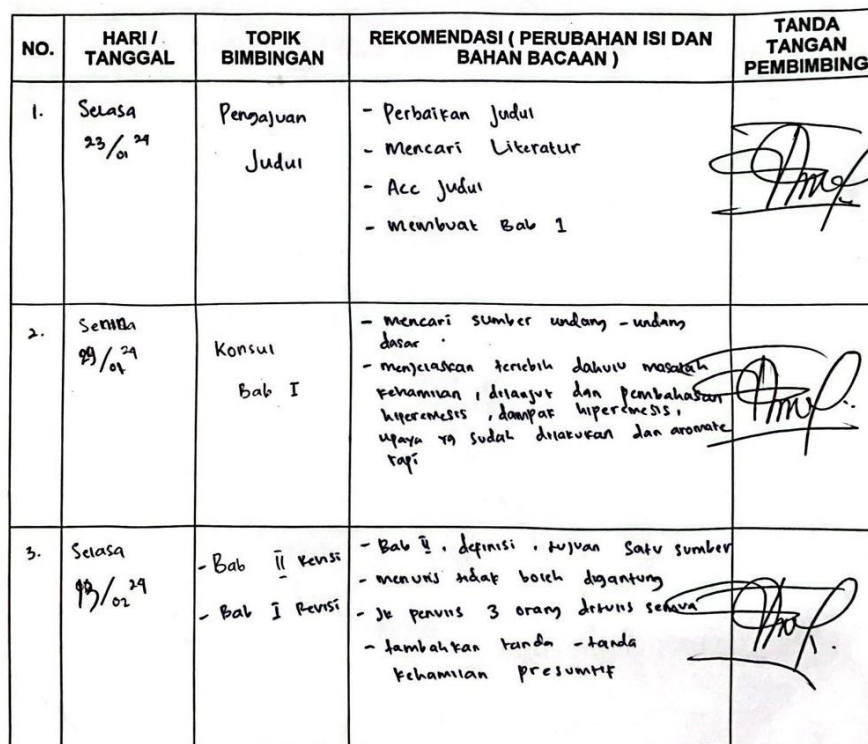 NO.
HARI / TANGGAL
TOPIK BIMBINGAN
REKOMENDASI ( PERUBAHAN ISI DAN BAHAN BACAAN )
TANDA TANGAN PEMBIMBING
1.
Selasa
23/01 24
Pengajuan
Judul
- Perbaikan Judul
- Mencari Literatur
- Acc Judul
- membuat Bab 1
2.
Senin
29/01 24
Konsul
Bab I
- mencari sumber undang - undang
dasar .
- menjelaskan terlebih dahulu masalah
kehamilan , dilanjut dan pembahasan
hiperemesis , dampak hiperemesis ,
upaya yg sudah dilakukan dan aromate
rapi
3.
Selasa
13/02 24
- Bab II Revisi
- Bab I Revisi
- Bab II , definisi , tujuan satu sumber
- menulis tidak boleh digantung
- Jk penulis 3 orang ditulis semua
- tambahkan tanda - tanda
kehamilan presumtif